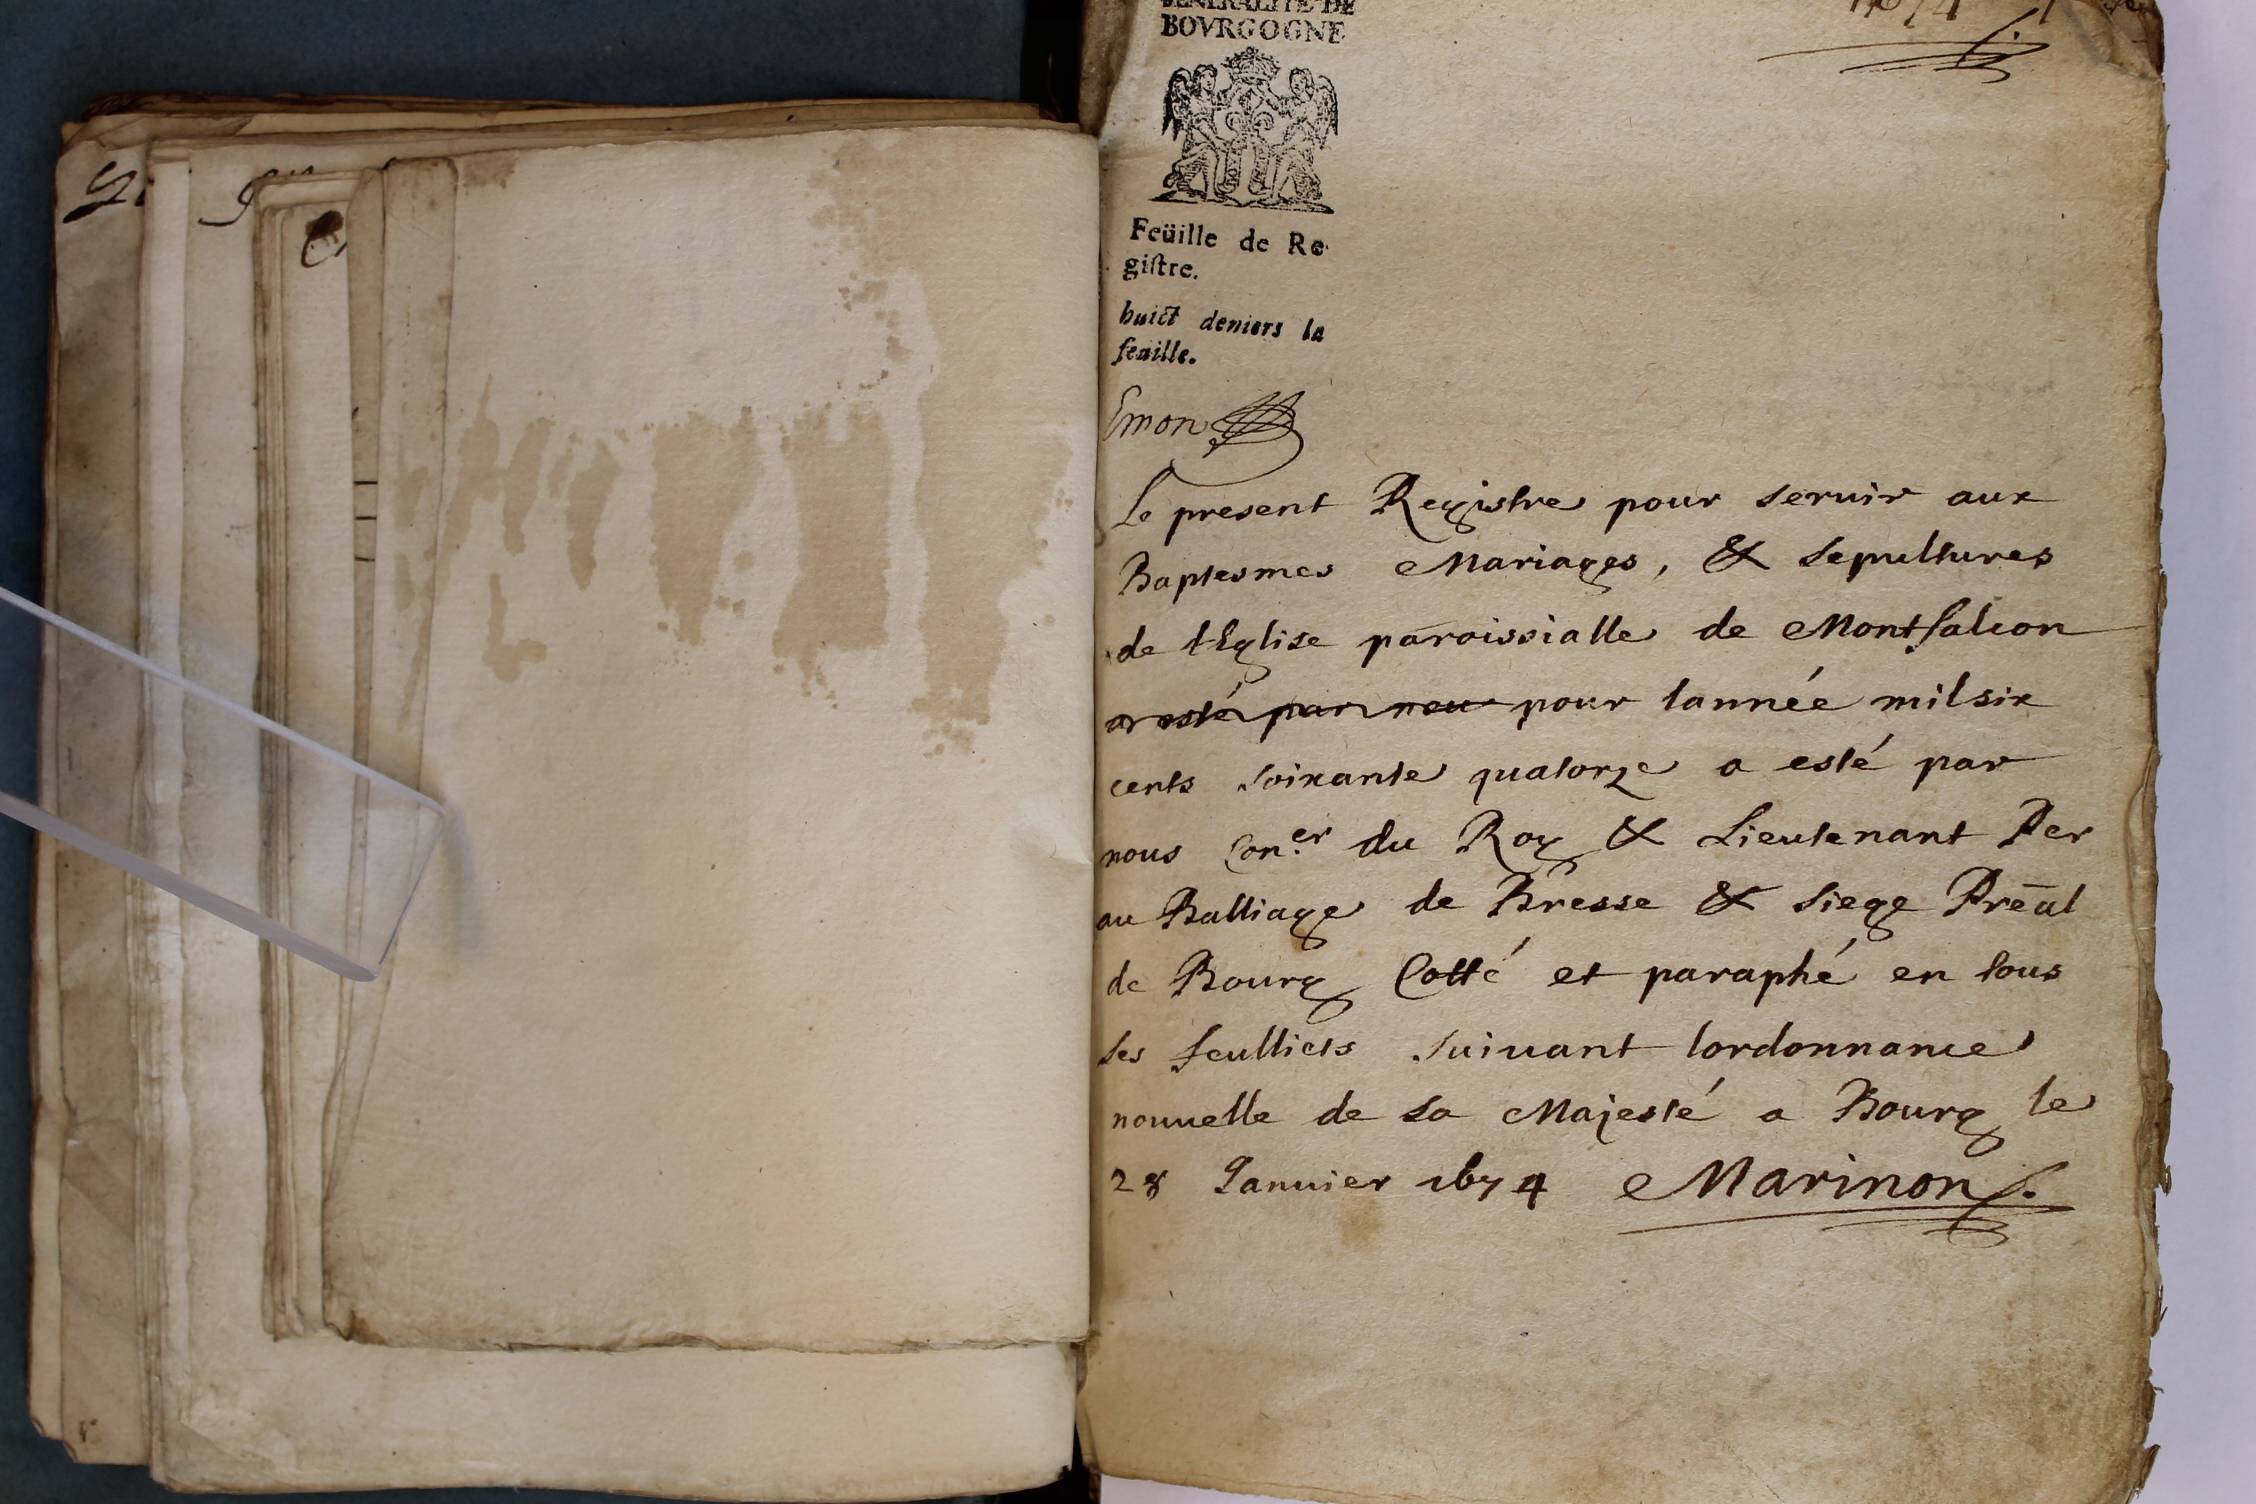 GENERALITE DE
BOVRGOGNE
1674
Feüille de Re-
giſtre.
huict deniers la
feuille.
Emon
Le present Registre pour seruir aux
Baptesmes Mariages, & sepultures
de lEglise paroissialle de Montfalcon
a esté par nou pour lannée mil six
cents soixante quatorze a esté par
nous Con.er du Roy & Lieutenant Per
au Balliage de Bresse & siege Pre̅al
de Bourg Cotté et paraphé en tous
ses feulliets suiuant lordonnance
nouuelle de sa Majesté a Bourg le
28 Januier 1674 Marinon